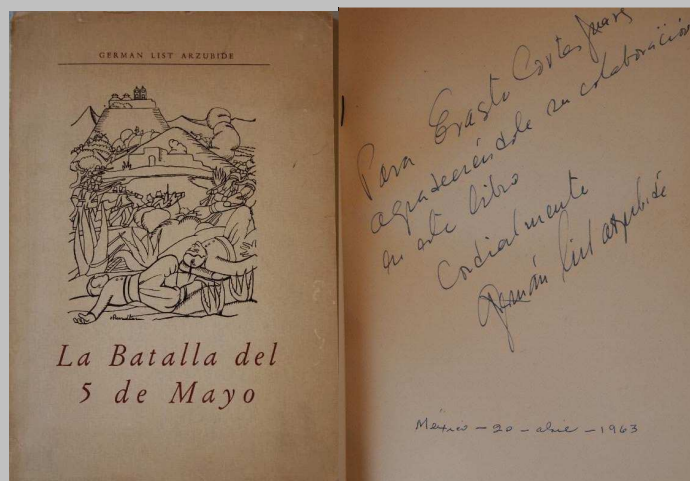 GERMAN LIST ARZUBIDE
La Batalla del
5 de Mayo
Para Erasto Cortes Juarez
agradeciéndole su colaboración
en este libro
Cordialmente
Germán List Arzubide
México - 20 - abril - 1963